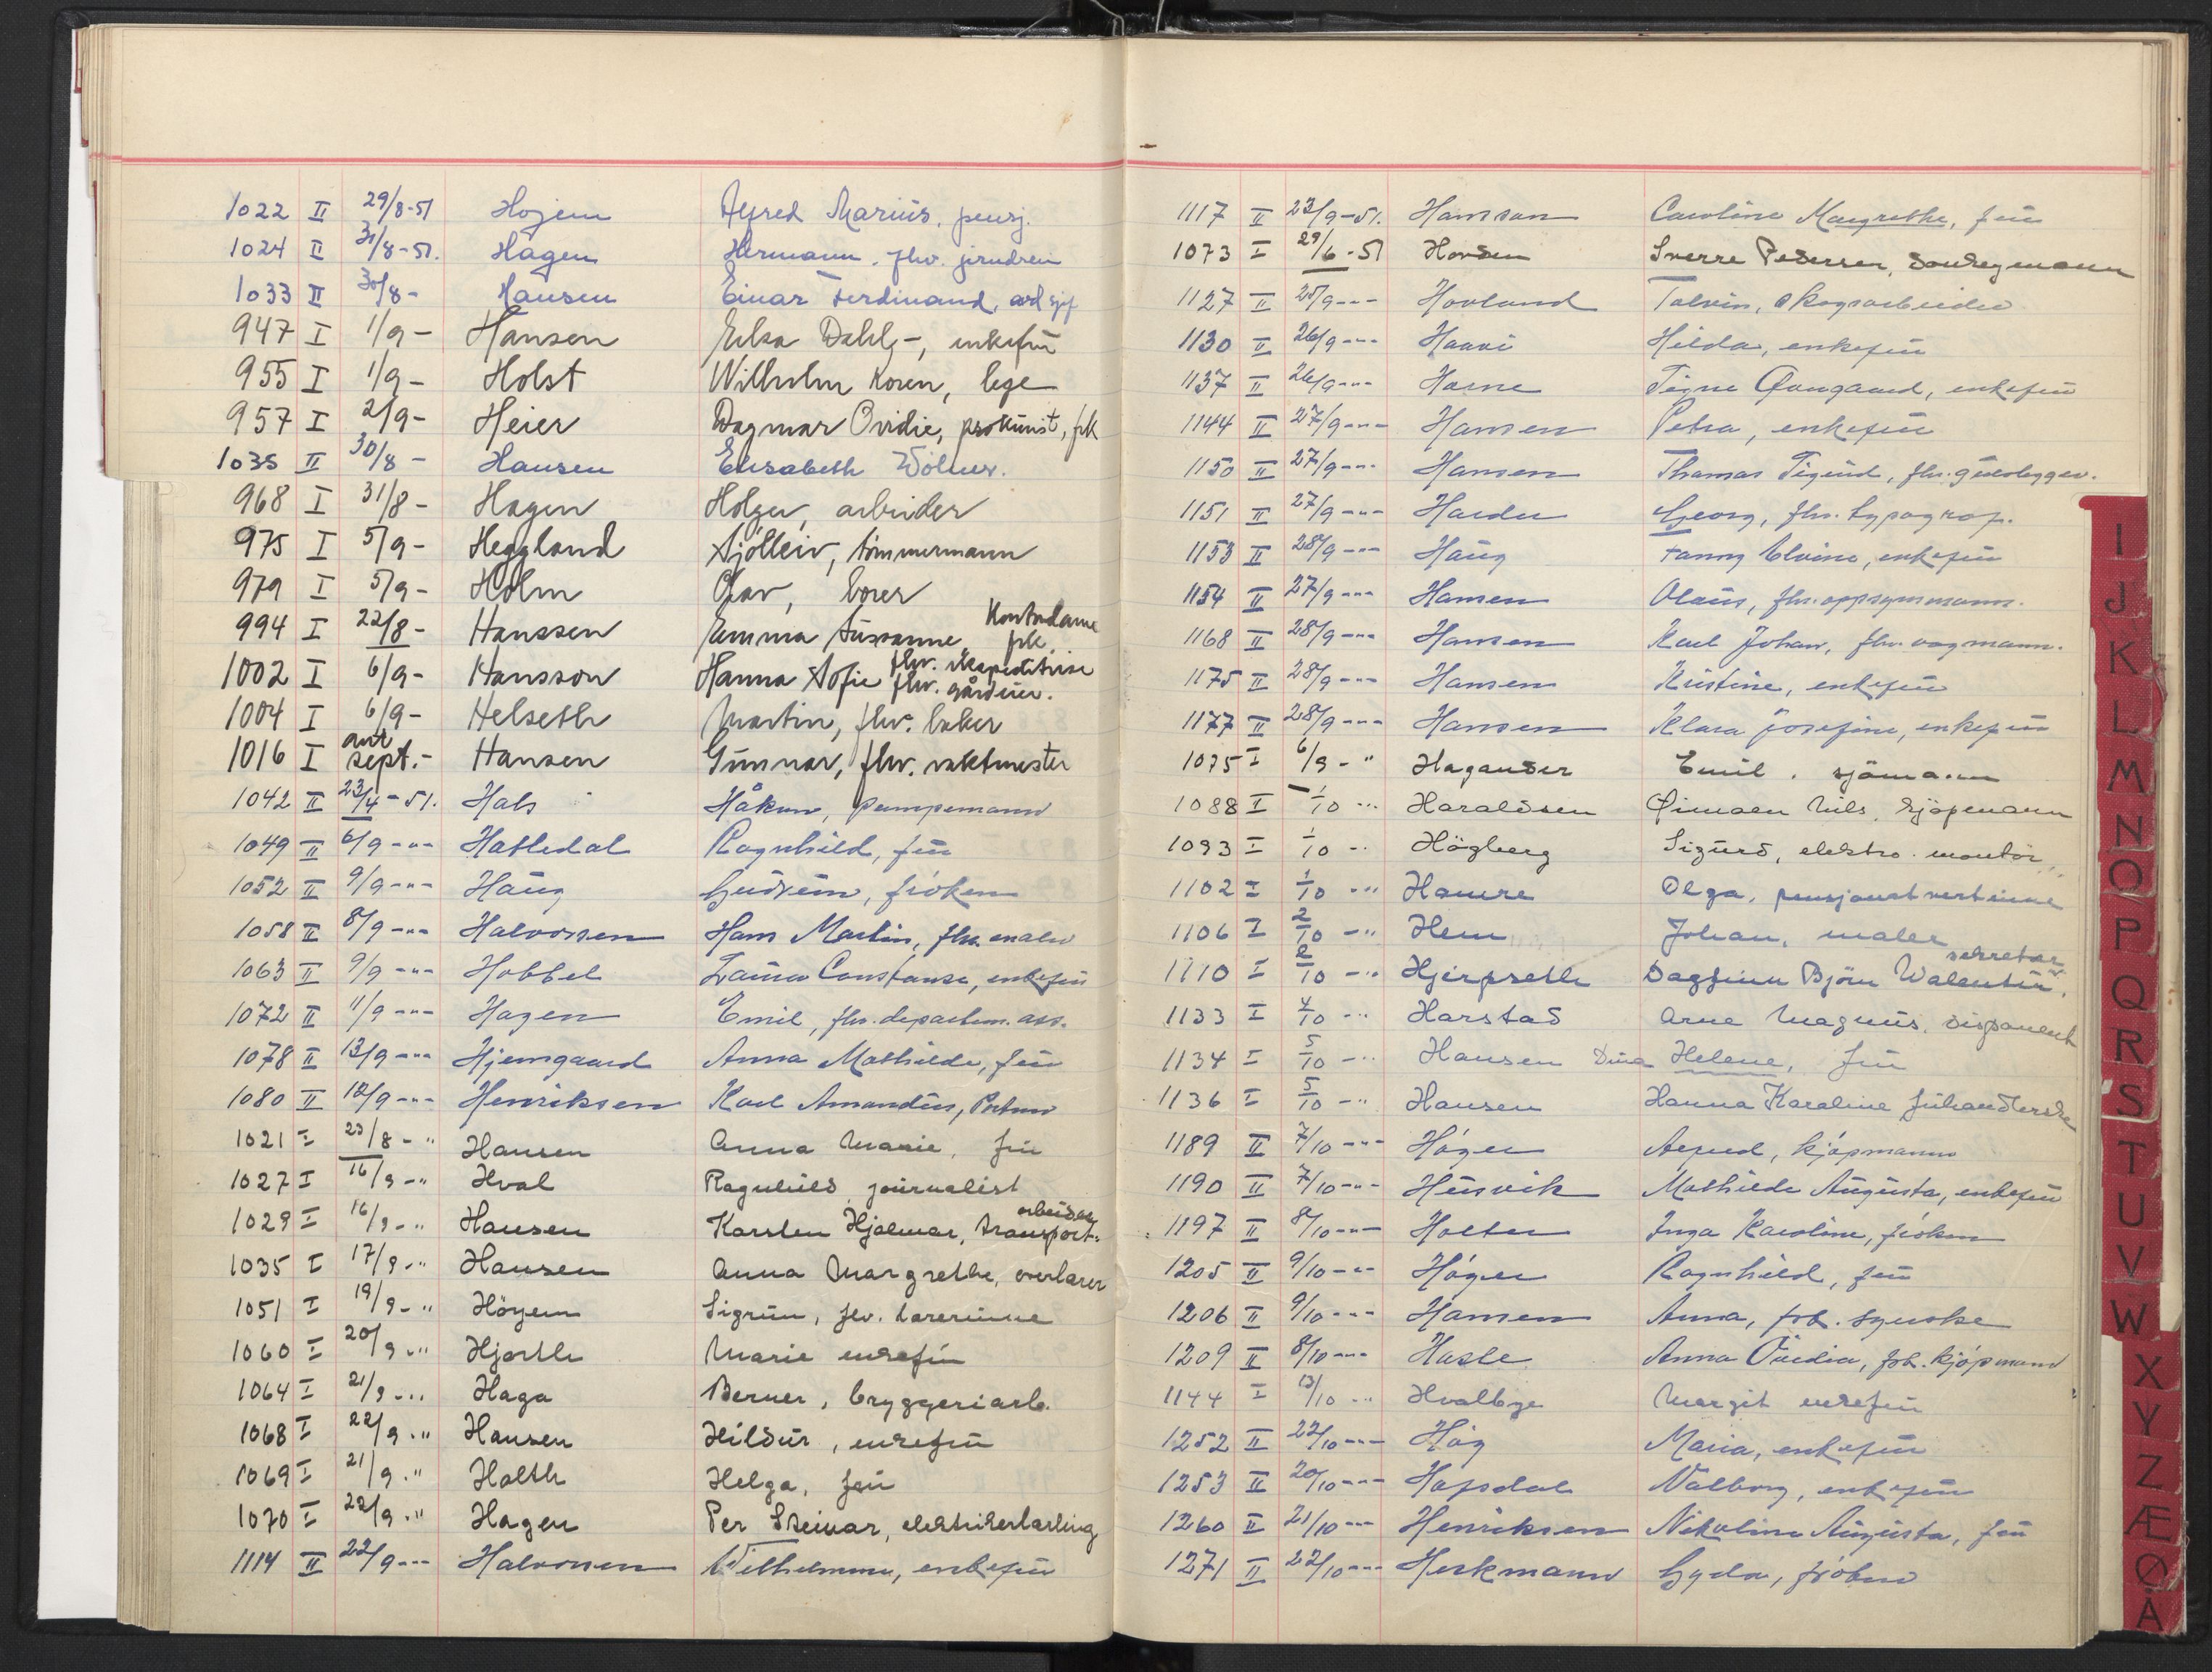 1022 II 29/8-51 Hojem Alfred Marius, pensj.
1024 II 31/8-51. Hagen Hermann, fhv.
1033 II 30/8- Hansen Einar Ferdinand,
947 I 1/9- Hansen Elsa Dahl-, enkefru
955 I 1/9- Holst Wilhelm Koren, lege
957 I 2/9- Heier Dagmar Ovidie, prokurist, frk
1035 II 30/8- Hansen Elisabeth Wölner.
968 I 31/8- Hagen Holger, arbeider
975 I 5/9- Heggland Sjölleiv, tömmermann
979 I 5/9- Holm Olav, borer
994 I 22/8- Hanssen Emma Sussanne Kontordame frk.
1002 I 6/9- Hansson Hanna Sofie fhv. ekspeditrise
1004 I 6/9- Helseth Martin, fhv. baker fhv. gårdeier.
1016 I ant sept.- Hansen Gunnar, fhv. vaktmester
1042 II 23/4-51. Hals Håkon, pumpemann
1049 II 6/9-"- Hatledal Ragnhild, fru
1052 II 9/9-"- Haug Gudrun, fröken
1058 II 8/9-"- Halvorsen Hans Martin, fhv. maler
1063 II 9/9-"- Hobbel Laura Constanse, enkefru
1072 II 11/9-"- Hagen Emil, fhv. departem. ass.
1078 II 13/9-"- Hjemgaard Anna Mathilde, fru
1080 II 12/9-"- Henriksen Karl Amandus,
1021 I 23/8-" Hansen Anna Marie, fru
1027 I 16/9-" Hval Ragnhild, journalist
1029 I 16/9-" Hansen Karsten Hjalmar, transport= arbeider
1035 I 17/9-" Hansen Anna Margrethe, overlærer
1051 I 19/9-" Höyem Sigrun, fhv. lærerinne
1060 I 20/9-" Hjorth Marie enkefru
1064 I 21/9-" Haga Berner, bryggeriarb.
1068 I 22/9-" Hansen Hildur, enkefru
1069 I 21/9-" Holth Helga, fru
1070 I 22/9-" Hagen Per Steinar, elektrikerlærling
1114 II 22/9-"- Halvorsen Wilhelmine, enkefru
1117 II 23/9-51. Hansson Caroline Margrethe, fru
1073 I 29/6-51 Hovden Sverre Pedersen,
1127 II 25/9-"- Hovland Tolvin, skogsarbeider
1130 II 26/9-"- Haavi Hilda, enkefru
1137 II 26/9-"- Hasne Signe enkefru
1144 II 27/9-"- Hansen Petra, enkefru
1150 II 27/9-"- Hansen Thomas Sigurd, fhv. gulvlegger.
1151 II 27/9-"- Harder Georg, fhv. typograf.
1153 II 28/9-"- Haug Fanny Elvine, enkefru
1154 II 27/9-"- Hansen Olaus, fhv. oppsynsmann.
1168 II 28/9-"- Hansen Karl Johan, fhv. vogmann.
1175 II 28/9-"- Hansen Kristine, enkefru
1177 II 28/9-"- Hansen Klara Josefine, enkefru
1075 I 6/9-" Hagander Emil, sjömann
1088 I 1/10-" Haraldsen Nils, kjöpmann
1093 I 1/10-" Högberg Sigurd, elektro. montör
1102 I 1/10-" Hamre Olga, pensjonatvertinne
1106 I 2/10-" Hem Johan, maler
1110 I 2/10-" Hjerpseth Dagfinn Björn Walentin, sekretær
1133 I 4/10-" Harstad Arne Magnus, disponent
1134 I 5/10-" Hansen Dina Helene, fru
1136 I 5/10-" Hansen Hanna Karoline
1189 II 7/10-"- Högen kjöpmann
1190 II 7/10-"- Husvik Mathilde Augusta, enkefru
1197 II 8/10-"- Holter Inga Karoline, fröken
1205 II 9/10-"- Högen Ragnhild, fru
1206 II 9/10-"- Hansen Anna, syerske
1209 II 8/10-"- Hasle Anna kjöpmann
1144 I 13/10-" Hvalbye Margit enkefru
1252 II 22/10-"- Håg Maria, enkefru
1253 II 20/10-"- Hafsdal Valborg, enkefru
1260 II 21/10-"- Henriksen Nikoline Augusta, fru
1271 II 22/10-"- Herkmann Gyda, fröken
I
J
K
L
M
N
O
P
Q
R
S
T
U
V
W
X
Y
Z
Æ
Ø
Å